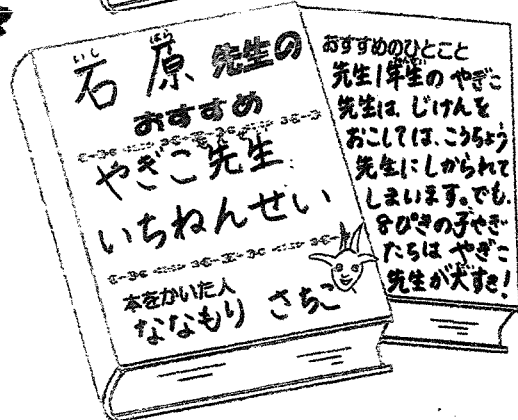 石原先生の
いし はら
おすすめ
やぎこ先生
いちねんせい
本をかいた人
ななもり さちこ
おすすめのひとこと
先生1年生の やぎこ
先生は、じけんを
おこしては、こうちょう
先生にしかられて
しまいます。でも、
8ぴきの子やぎ
たちは やぎこ
先生が大すき!